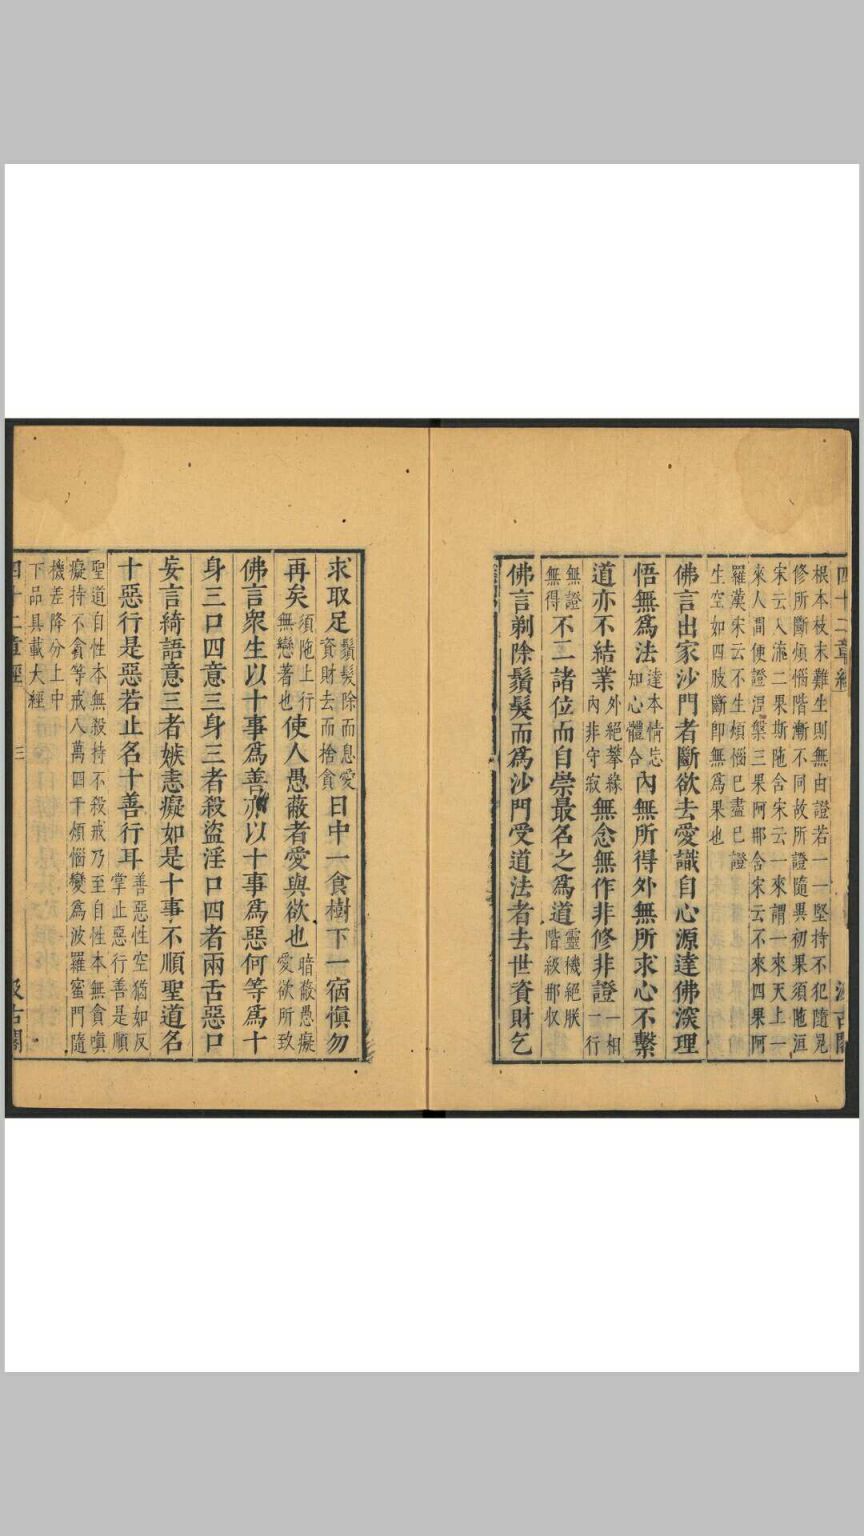 四十二章經 汲古閣
根本枝末難生則無由證若一一堅持不犯隨見
修所斷煩惱階漸不同故所證隨異初果須陁洹
宋云入流二果斯陁含宋云一來謂一來天上一
來人間便證涅槃三果阿那含宋云不來四果阿
羅漢宋云不生煩惱已盡已證
生空如四肢斷卽無爲果也
佛言出家沙門者斷欲去愛識自心源達佛深理
悟無爲法達本情忘知心體合內無所得外無所求心不繫
道亦不結業外絕攀緣內非守寂無念無作非修非證一相一行
無證無得不二諸位而自崇最名之爲道靈機絕朕階級那収
佛言剃除鬚髮而爲沙門受道法者去世資財乞
求取足鬚髮除而息愛資財去而捨貪日中一食樹下一宿慎勿
再矣須陁上行無戀著也使人愚蔽者愛與欲也暗蔽愚癡愛欲所致
佛言衆生以十事爲善亦以十事爲惡何等爲十
身三口四意三身三者殺盜淫口四者兩舌惡口
妄言綺語意三者嫉恚癡如是十事不順聖道名
十惡行是惡若止名十善行耳善惡性空猶如反掌止惡行善是順
聖道自性本無殺持不殺戒乃至自性本無貪嗔
癡持不貪等戒八萬四千煩惱變爲波羅蜜門隨
機差降分上中
下品具載大經
四十二章經 三 汲古閣